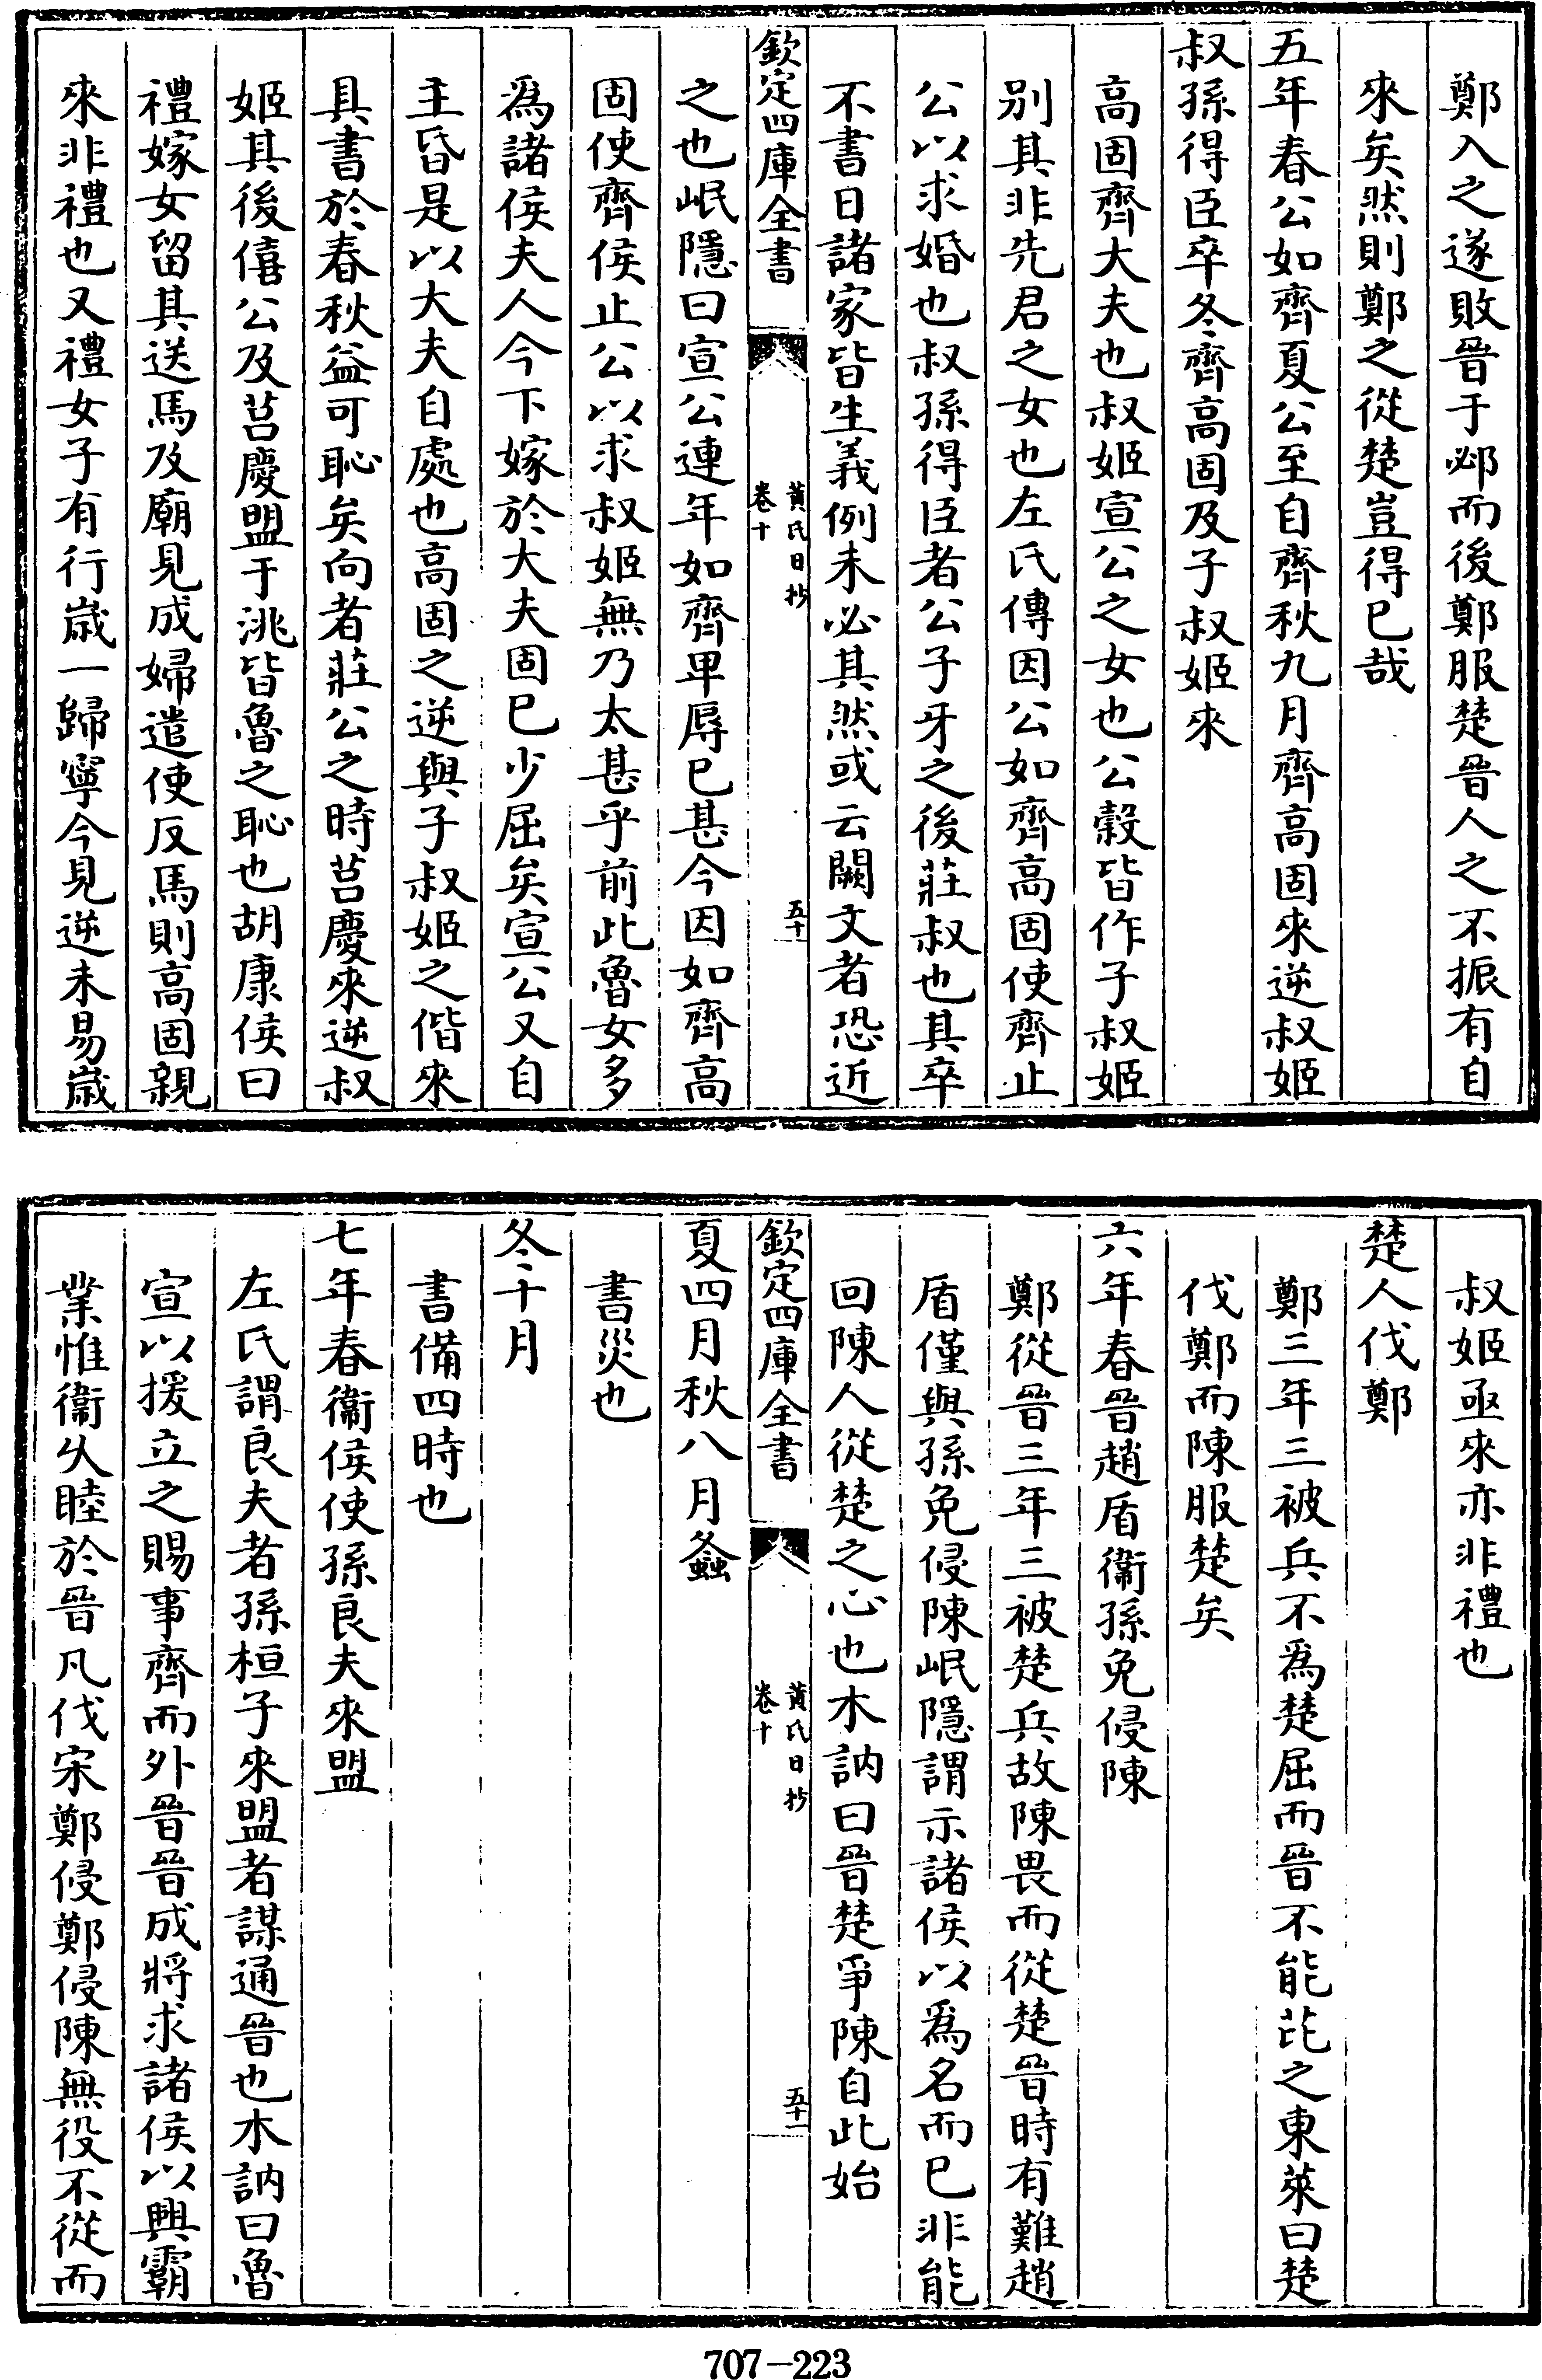 鄭入之遂敗晉于邲而後鄭服楚晉人之不振有自
來矣然則鄭之從楚豈得已哉
五年春公如齊夏公至自齊秋九月齊高固來逆叔姬
叔孫得臣卒冬齊高固及子叔姬來
高固齊大夫也叔姬宣公之女也公穀皆作子叔姬
别其非先君之女也左氏傳因公如齊高固使齊止
公以求婚也叔孫得臣者公子牙之後莊叔也其卒
不書日諸家皆生義例未必其然或云闕文者恐近
欽定四庫全書
黃氏日抄
卷十
五十
之也岷隱曰宣公連年如齊卑辱已甚今因如齊高
固使齊侯止公以求叔姬無乃太甚乎前此魯女多
爲諸侯夫人今下嫁於大夫固已少屈矣宣公又自
主昏是以大夫自處也高固之逆與子叔姬之偕來
具書於春秋益可恥矣向者莊公之時莒慶來逆叔
姬其後僖公及莒慶盟于洮皆魯之恥也胡康侯曰
禮嫁女留其送馬及廟見成婦遣使反馬則高固親
來非禮也又禮女子有行歲一歸寧今見逆未易歲
叔姬亟來亦非禮也
楚人伐鄭
鄭三年三被兵不爲楚屈而晉不能芘之東萊曰楚
伐鄭而陳服楚矣
六年春晉趙盾衞孫免侵陳
鄭從晉三年三被楚兵故陳畏而從楚晉時有難趙
盾僅與孫免侵陳岷隱謂示諸侯以爲名而已非能
回陳人從楚之心也木訥曰晉楚爭陳自此始
欽定四庫全書
黃氏日抄
卷十
五十一
夏四月秋八月螽
書災也
冬十月
書備四時也
七年春衞侯使孫良夫來盟
左氏謂良夫者孫桓子來盟者謀通晉也木訥曰魯
宣以援立之賜事齊而外晉晉成將求諸侯以興霸
業惟衞久睦於晉凡伐宋鄭侵鄭侵陳無役不從而
707-223